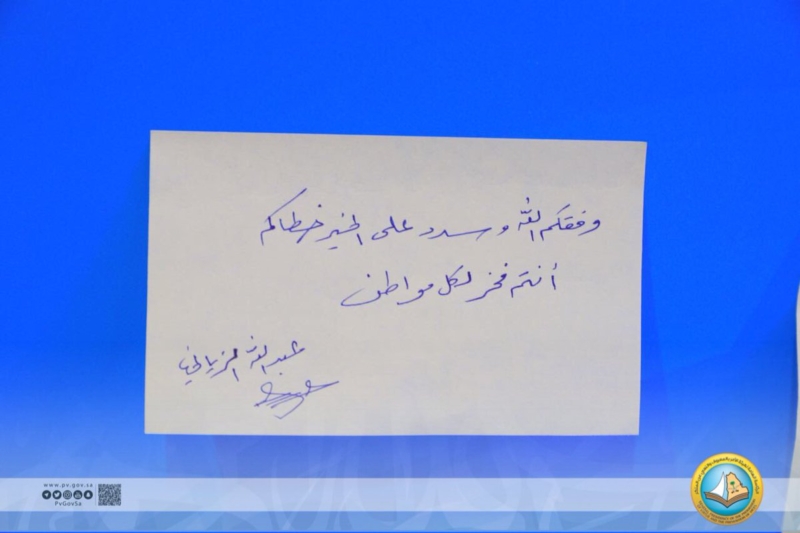 وفقكم الله وسدد على الخير خطاكم
أنتم فخر لكل مواطن
عبدالله الزياني
www.pv.gov.sa
PvGovSa